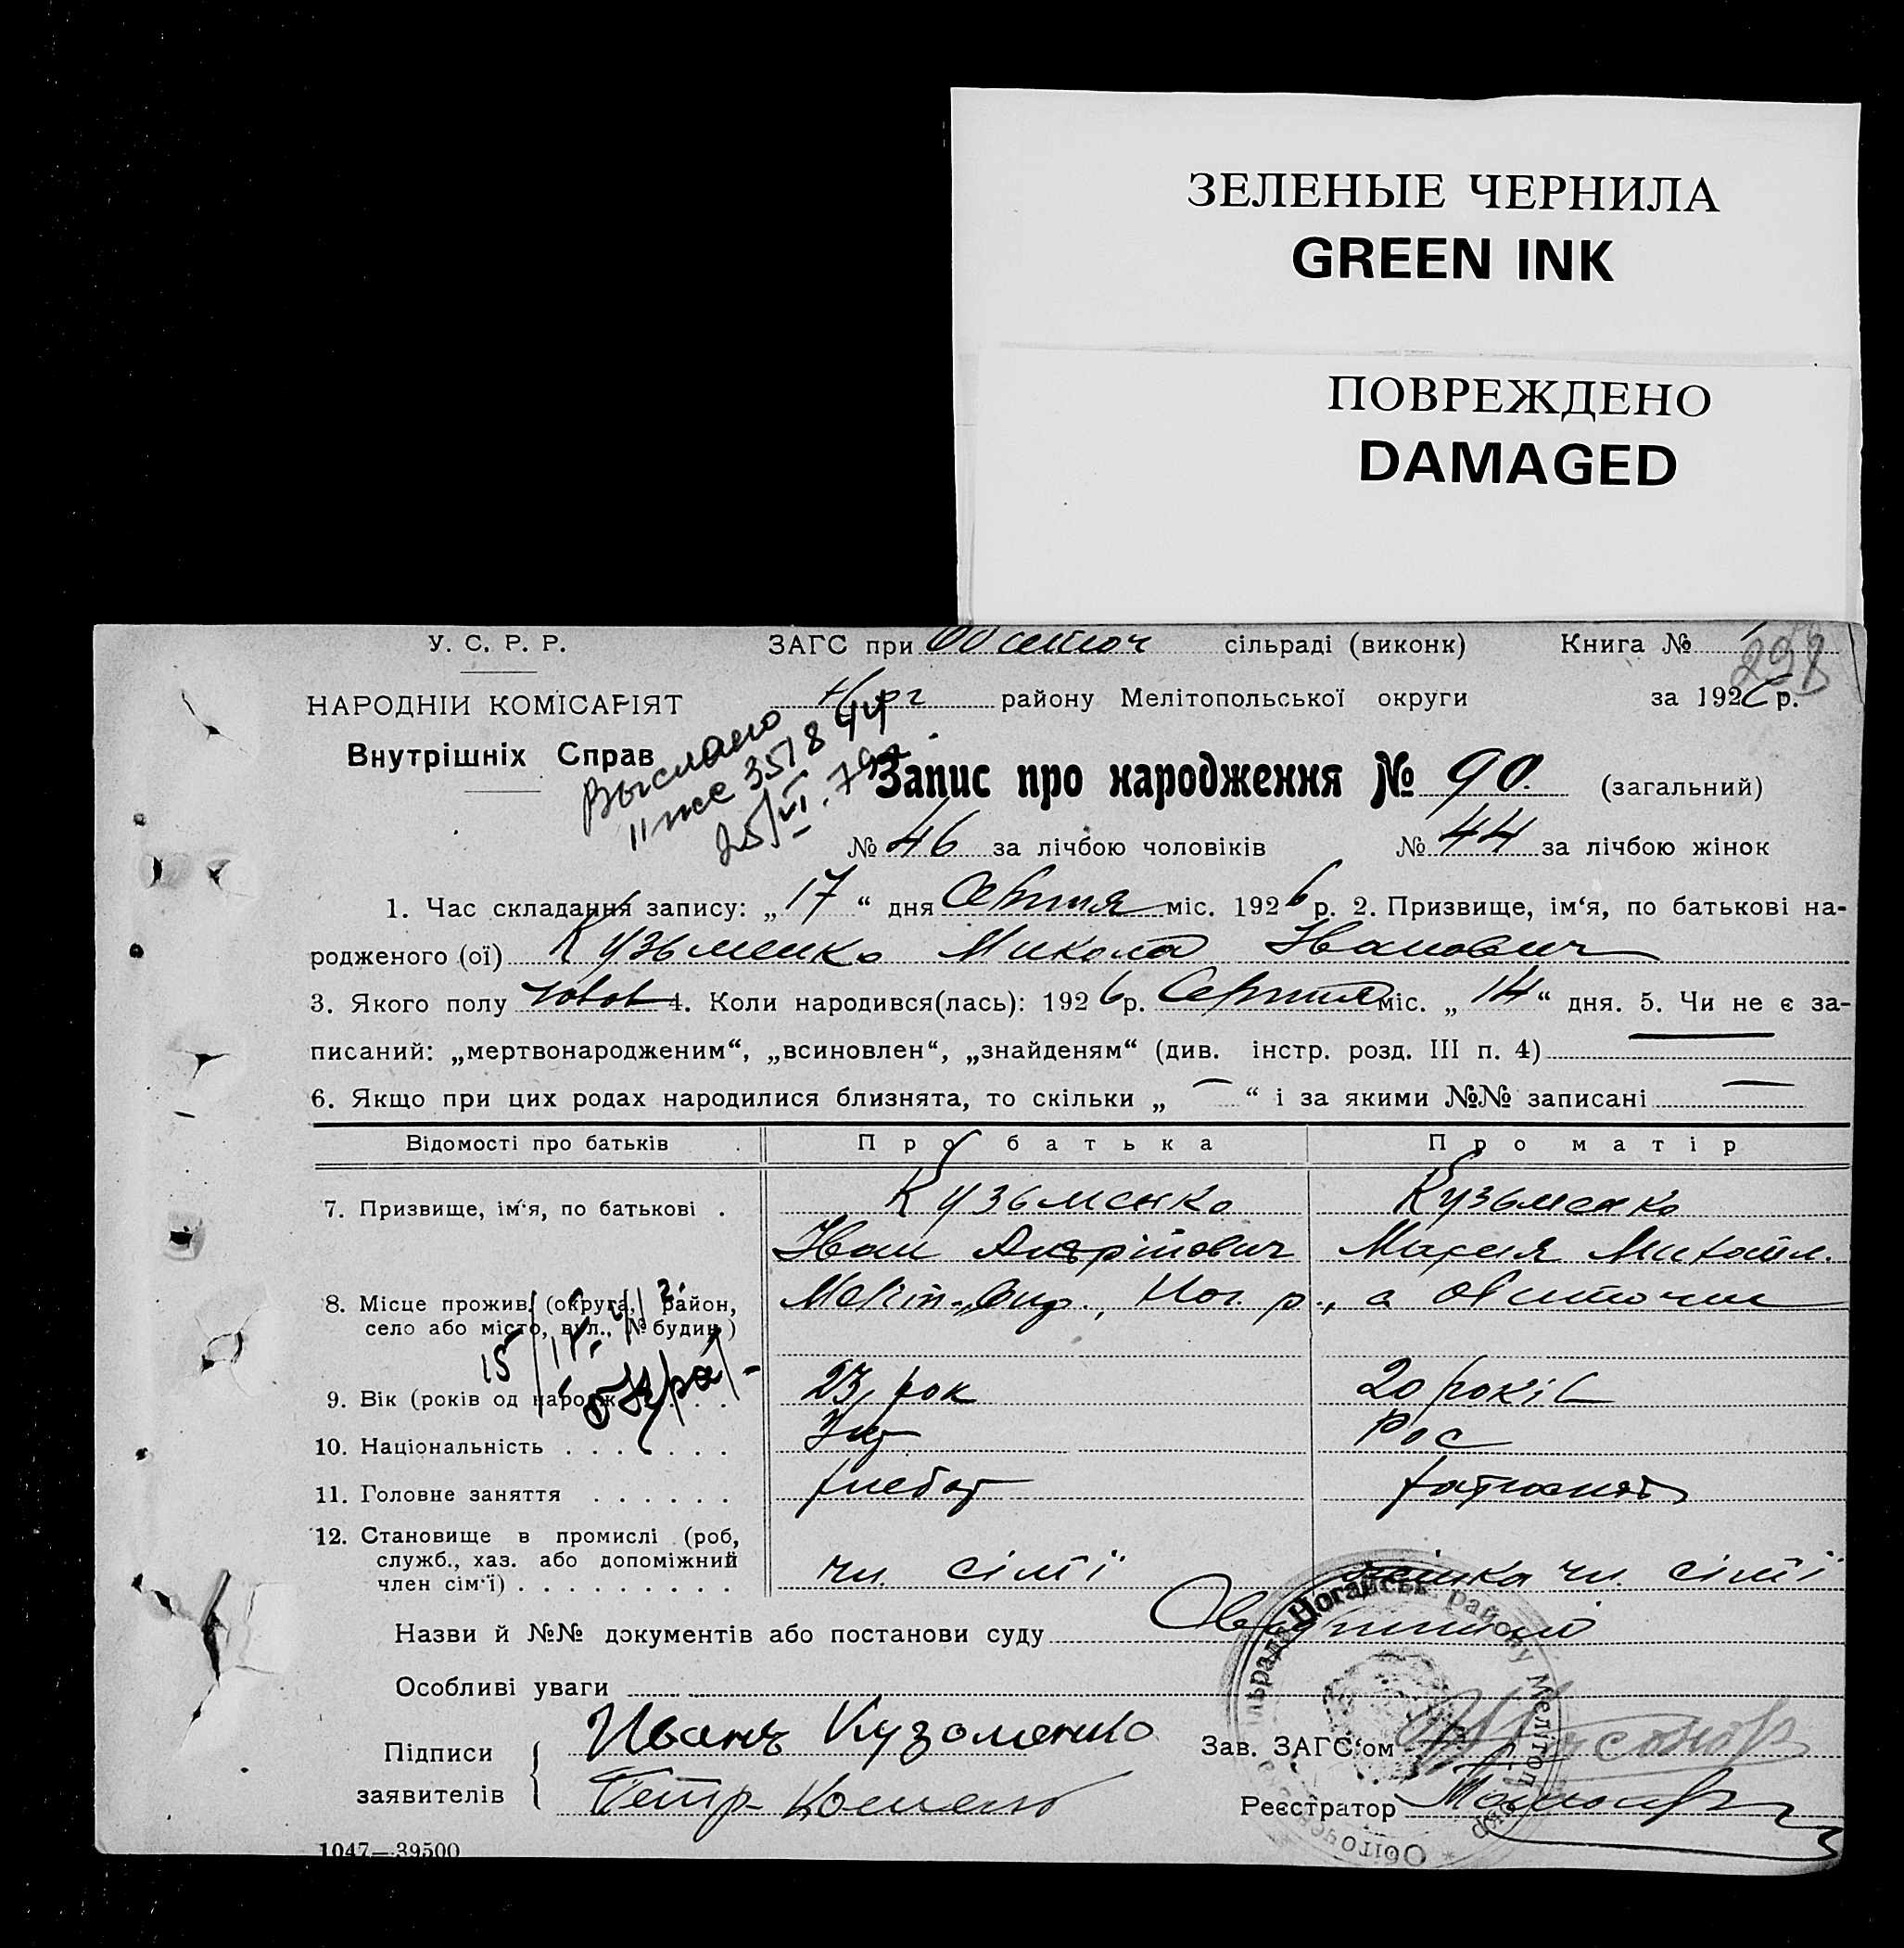 ЗЕЛЕНЫЕ ЧЕРНИЛА
GREEN INK
ПОВРЕЖДЕНО
DAMAGED
У. С. Р. Р. ЗАГС при сільраді (виконк) Книга №
298
НАРОДНІЙ КОМІСАРІЯТ району Мелітопольської округи за 1926 р.
Внутрішніх Справ
Выслано
Запис про народження № 90. (загальний)
№ 46 за лічбою чоловіків № 44 за лічбою жінок
1. Час складання запису: „17“ дня Серпня міс. 1926 р. 2. Призвище, ім‘я, по батькові на-
родженого (ої) Кузьменко Микола Іванович
3. Якого полу чолов 4. Коли народився(лась): 1926 р. Серпня міс. „14“ дня. 5. Чи не є за-
писаний: „мертвонародженим“, „всиновлен“, „знайденям“ (див. інстр. розд. III п. 4) —
6. Якщо при цих родах народилися близнята, то скільки „—“ і за якими №№ записані —
Відомості про батьків Про батька Про матір
7. Призвище, ім‘я, по батькові . Кузьменко Кузьменко
Іван Андрійович Мария Михайл.
8. Місце прожив. (округа, район, Меліт. окр., Ног. р., с Обиточне
село або місто, вул., № будин.)
9. Вік (років од народж. 23 рок 20 років
10. Національність . . . . . . . Укр Рос
11. Головне заняття . . . . . . хлебор
12. Становище в промислі (роб,
служб., хаз. або допоміжний
член сім‘ї) . . . . . . . . . . чл. сімї жінка чл. сімї
Назви й №№ документів або постанови суду
Особливі уваги
Підписи Иванъ Кузоменко Зав. ЗАГС‘ом
заявителів Петр Реєстратор
Ногайськ. району Мелітоп. окр. * Обіточен
1047—39500